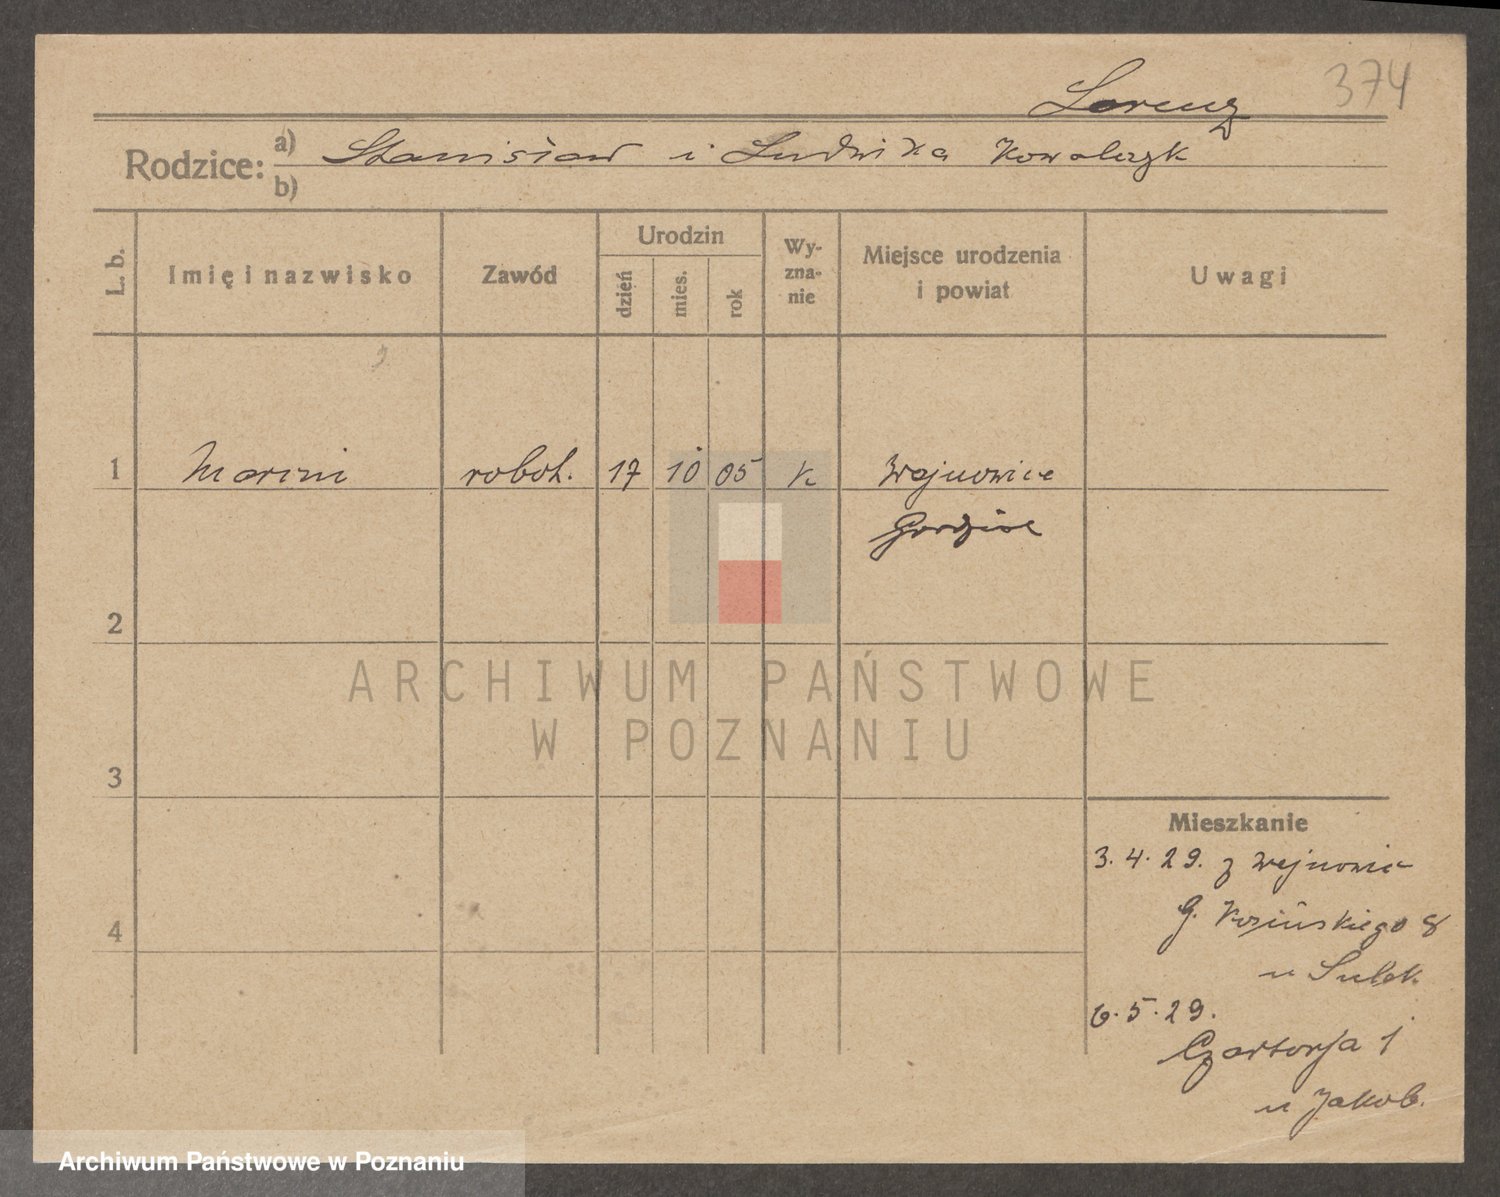 374
Lorenz
Rodzice: a) Stanisław i Ludwika Kowalczyk
b)
L. b.
Imię i nazwisko
Zawód
Urodzin
dzień
mies.
rok
Wy-
zna-
nie
Miejsce urodzenia
i powiat
Uwagi
1 Marcin robot. 17 10 05 k Wojnowice
2
3
4
Mieszkanie
3.4.29. z Wojnowic
G. Kosińskiego 8
u
6.5.29.
Czartorja 1
u Jakob.
ARCHIWUM PAŃSTWOWE
W POZNANIU
Archiwum Państwowe w Poznaniu